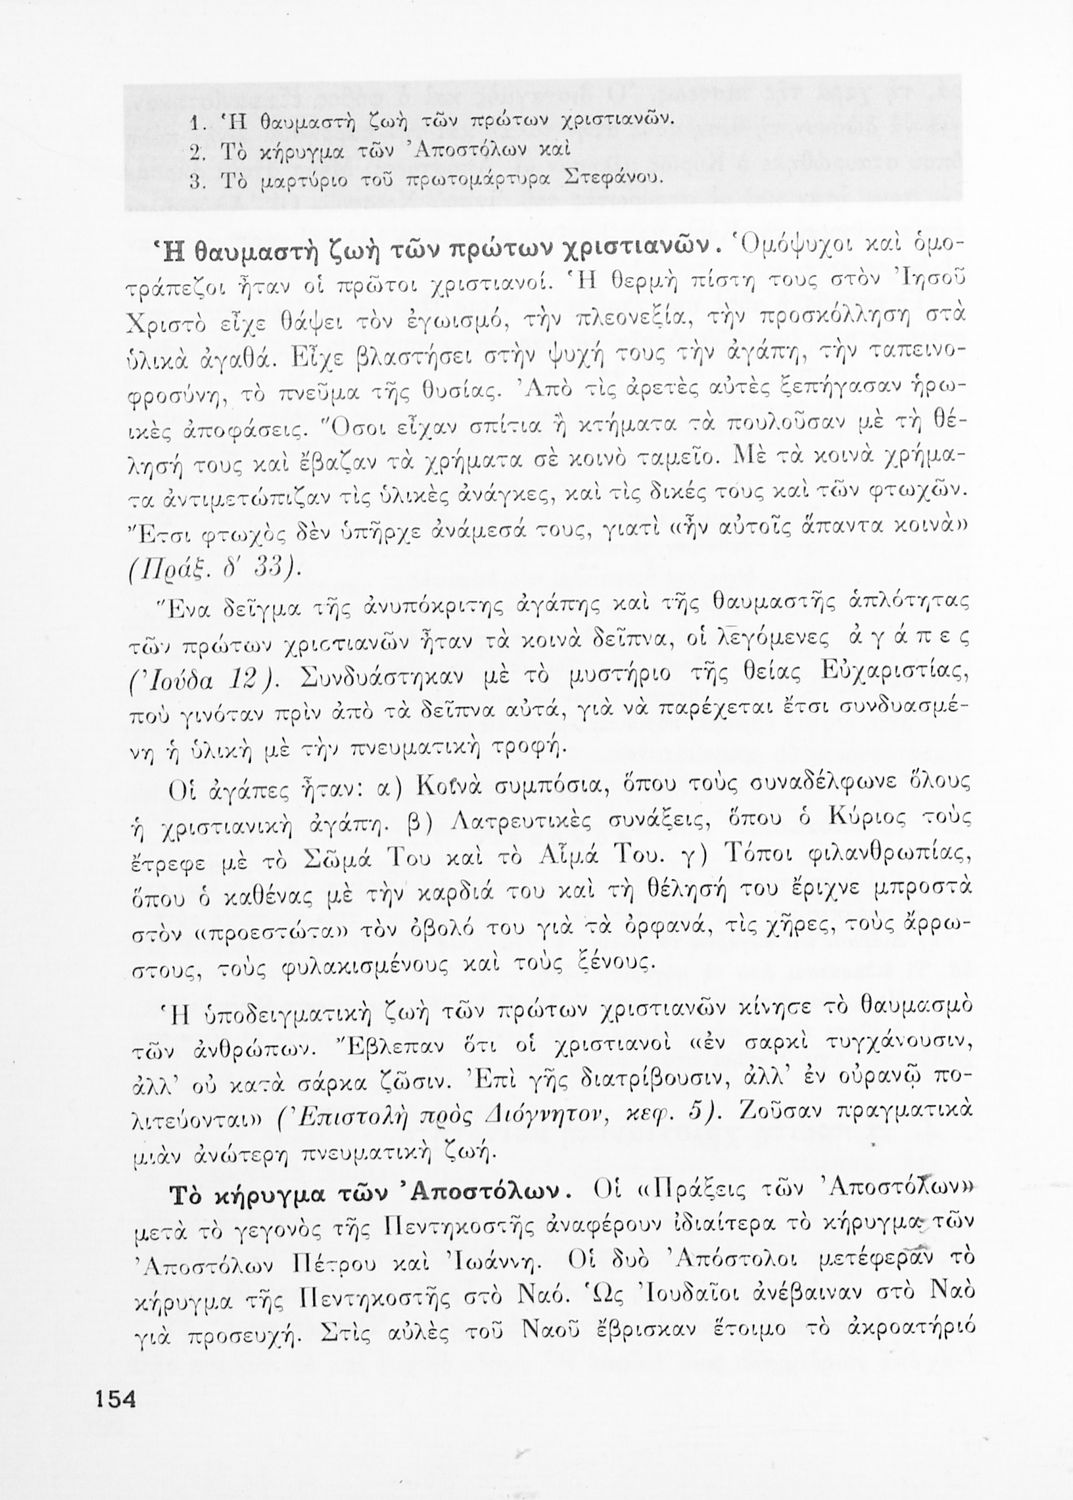 1. Ἡ θαυμαστὴ ζωὴ τῶν πρώτων χριστιανῶν.
2. Τὸ κήρυγμα τῶν Ἀποστόλων καὶ
3. Τὸ μαρτύριο τοῦ πρωτομάρτυρα Στεφάνου.
Ἡ θαυμαστὴ ζωὴ τῶν πρώτων χριστιανῶν. Ὁμόψυχοι καὶ ὁμο-
τράπεζοι ἦταν οἱ πρῶτοι χριστιανοί. Ἡ θερμὴ πίστη τους στὸν Ἰησοῦ
Χριστὸ εἶχε θάψει τὸν ἐγωισμό, τὴν πλεονεξία, τὴν προσκόλληση στὰ
ὑλικὰ ἀγαθά. Εἶχε βλαστήσει στὴν ψυχή τους τὴν ἀγάπη, τὴν ταπεινο-
φροσύνη, τὸ πνεῦμα τῆς θυσίας. Ἀπὸ τὶς ἀρετὲς αὐτὲς ξεπήγασαν ἡρω-
ικὲς ἀποφάσεις. Ὅσοι εἶχαν σπίτια ἢ κτήματα τὰ πουλοῦσαν μὲ τὴ θέ-
λησή τους καὶ ἔβαζαν τὰ χρήματα σὲ κοινὸ ταμεῖο. Μὲ τὰ κοινὰ χρήμα-
τα ἀντιμετώπιζαν τὶς ὑλικὲς ἀνάγκες, καὶ τὶς δικές τους καὶ τῶν φτωχῶν.
Ἔτσι φτωχὸς δὲν ὑπῆρχε ἀνάμεσά τους, γιατὶ «ἦν αὐτοῖς ἅπαντα κοινὰ»
(Πράξ. δ' 33).
Ἕνα δεῖγμα τῆς ἀνυπόκριτης ἀγάπης καὶ τῆς θαυμαστῆς ἁπλότητας
τῶν πρώτων χριστιανῶν ἦταν τὰ κοινὰ δεῖπνα, οἱ λεγόμενες ἀ γ ά π ε ς
(Ἰούδα 12). Συνδυάστηκαν μὲ τὸ μυστήριο τῆς θείας Εὐχαριστίας,
ποὺ γινόταν πρὶν ἀπὸ τὰ δεῖπνα αὐτά, γιὰ νὰ παρέχεται ἔτσι συνδυασμέ-
νη ἡ ὑλικὴ μὲ τὴν πνευματικὴ τροφή.
Οἱ ἀγάπες ἦταν: α) Κοινὰ συμπόσια, ὅπου τοὺς συναδέλφωνε ὅλους
ἡ χριστιανικὴ ἀγάπη. β) Λατρευτικὲς συνάξεις, ὅπου ὁ Κύριος τοὺς
ἔτρεφε μὲ τὸ Σῶμά Του καὶ τὸ Αἷμά Του. γ) Τόποι φιλανθρωπίας,
ὅπου ὁ καθένας μὲ τὴν καρδιά του καὶ τὴ θέλησή του ἔριχνε μπροστὰ
στὸν «προεστώτα» τὸν ὀβολό του γιὰ τὰ ὀρφανά, τὶς χῆρες, τοὺς ἄρρω-
στους, τοὺς φυλακισμένους καὶ τοὺς ξένους.
Ἡ ὑποδειγματικὴ ζωὴ τῶν πρώτων χριστιανῶν κίνησε τὸ θαυμασμὸ
τῶν ἀνθρώπων. Ἔβλεπαν ὅτι οἱ χριστιανοὶ «ἐν σαρκὶ τυγχάνουσιν,
ἀλλ' οὐ κατὰ σάρκα ζῶσιν. Ἐπὶ γῆς διατρίβουσιν, ἀλλ' ἐν οὐρανῷ πο-
λιτεύονται» (Ἐπιστολὴ πρὸς Διόγνητον, κεφ. 5). Ζοῦσαν πραγματικὰ
μιὰν ἀνώτερη πνευματικὴ ζωή.
Τὸ κήρυγμα τῶν Ἀποστόλων. Οἱ «Πράξεις τῶν Ἀποστόλων»
μετὰ τὸ γεγονὸς τῆς Πεντηκοστῆς ἀναφέρουν ἰδιαίτερα τὸ κήρυγμα τῶν
Ἀποστόλων Πέτρου καὶ Ἰωάννη. Οἱ δυὸ Ἀπόστολοι μετέφεραν τὸ
κήρυγμα τῆς Πεντηκοστῆς στὸ Ναό. Ὡς Ἰουδαῖοι ἀνέβαιναν στὸ Ναὸ
γιὰ προσευχή. Στὶς αὐλὲς τοῦ Ναοῦ ἔβρισκαν ἕτοιμο τὸ ἀκροατήριό
154